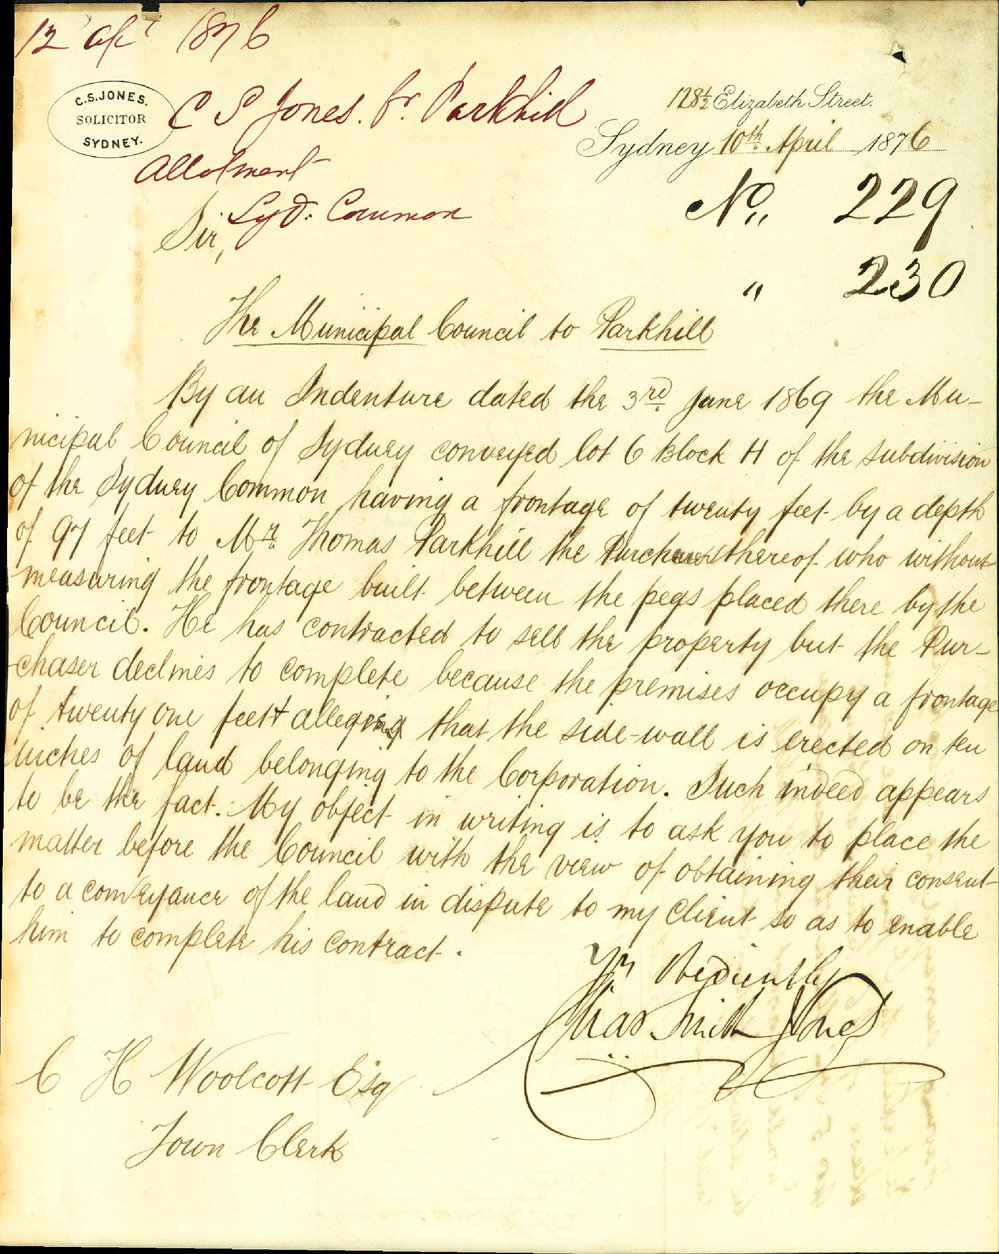 12 Apl 1876
C.S. JONES.
SOLICITOR
SYDNEY.
C S Jones. fr. Parkhill
Allotment
Syd. Common
128½ Elizabeth Street.
Sydney 10th April 1876
No,, 229
" 230
Sir,
The Municipal Council to Parkhill
By an Indenture dated the 3rd June 1869 the Mu-
nicipal Council of Sydney conveyed lot 6 Block H of the subdivision
of the Sydney Common having a frontage of twenty feet by a depth
of 97 feet to Mr. Thomas Parkhill the Purchaser thereof who without
measuring the frontage built between the pegs placed there by the
Council. He has contracted to sell the property but the Pur-
chaser declines to complete because the premises occupy a frontage
of twenty one feet & alleging that the side-wall is erected on ten
inches of land belonging to the Corporation. Such indeed appears
to be the fact. My object in writing is to ask you to place the
matter before the Council with the view of obtaining their consent
to a conveyance of the land in dispute to my Client so as to enable
him to complete his contract.
Yr Obediently
Chas Smith Jones
C H Woolcott Esq
Town Clerk